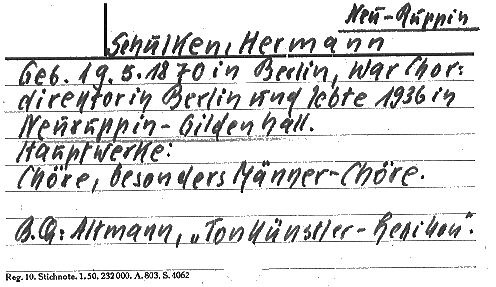 Neu-Ruppin
Schulken, Hermann
Geb. 19.5.1870 in Berlin, war Chor=
direktor in Berlin und lebte 1936 in
Neuruppin-Gildenhall.
Hauptwerke:
Chöre, besonders Männer-Chöre.
B.Q: Altmann, „Tonkünstler-Lexikon".
Reg. 10. Stichnote. 1.50. 232000. A. 803. S. 4062